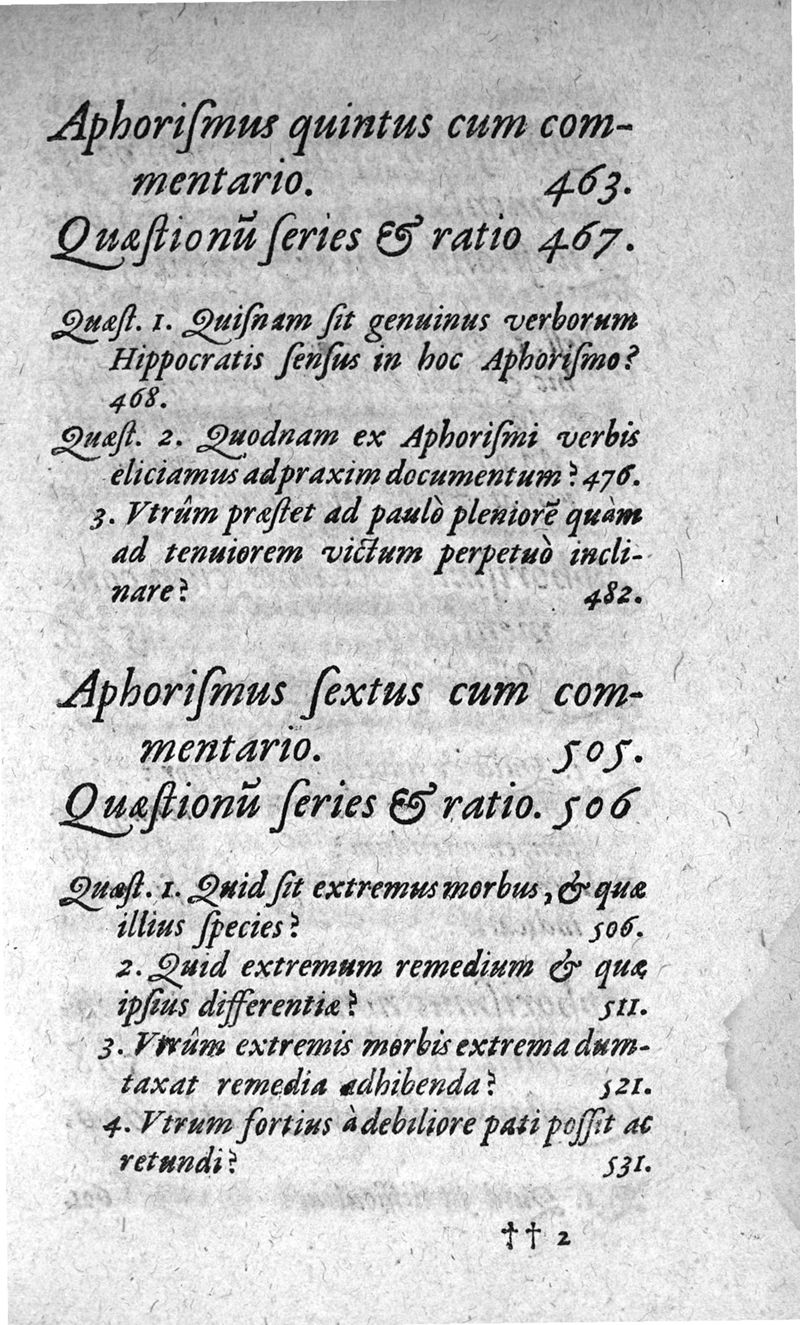 Aphoriſmus quintus cum com-
mentario. 463.
Quæſtionū ſeries & ratio 467.
Quæſt. 1. Quiſnam ſit genuinus verborum
Hippocratis ſenſus in hoc Aphoriſmo?
468.
Quæſt. 2. Quodnam ex Aphoriſmi verbis
eliciamus ad praxim documentum? 476.
3. Vtrûm præſtet ad paulò pleniorē quàm
ad tenuiorem victum perpetuò incli-
nare? 482.
Aphoriſmus ſextus cum com-
mentario. 505.
Quæſtionū ſeries & ratio. 506
Quæſt. 1. Quid ſit extremus morbus, & quæ
illius ſpecies? 506.
2. Quid extremum remedium & quæ
ipſius differentiæ? 511.
3. Vtrûm extremis morbis extrema dum-
taxat remedia adhibenda? 521.
4. Vtrum fortius à debiliore pati poſſit ac
retundi? 531.
†† 2